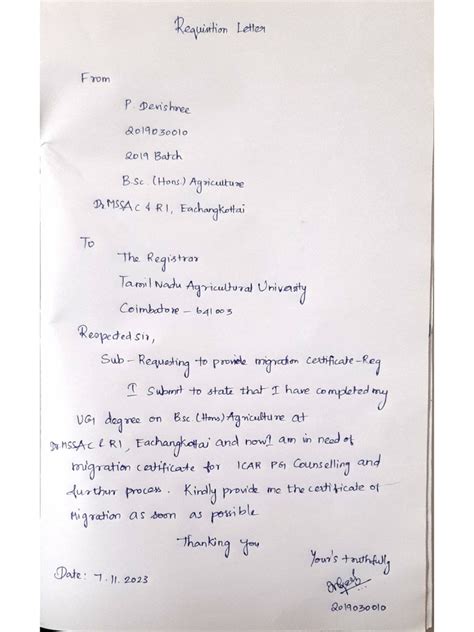 Requisition Letter
From
P. Devishree
2019030010
2019 Batch
B.Sc. (Hons) Agriculture
Dr MSSAC & RI, Eachangkottai
To
The Registrar
Tamil Nadu Agricultural University
Coimbatore - 641003
Respected Sir,
Sub - Requesting to provide migration certificate - Reg
I Submit to state that I have completed my
UG degree on Bsc (Hons) Agriculture at
Dr MSSAC & RI, Eachangkottai and now I am in need of
migration certificate for ICAR PG Counselling and
further process. Kindly provide me the certificate of
Migration as soon as possible
Thanking You
Your's truthfully
Date: 7.11.2023
2019030010